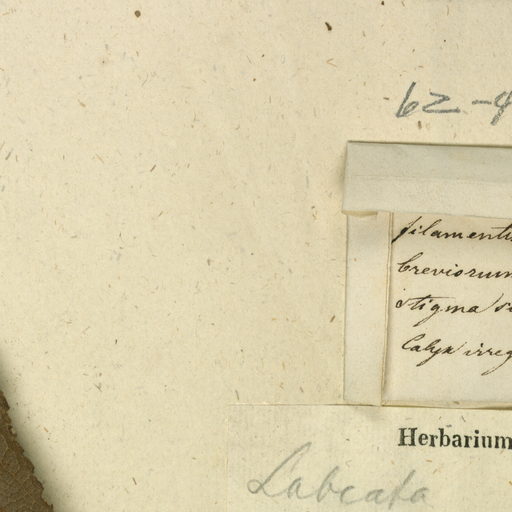 62-4
filamentis
breviorum
stigma
Calyx irreg
Herbarium
Labeata